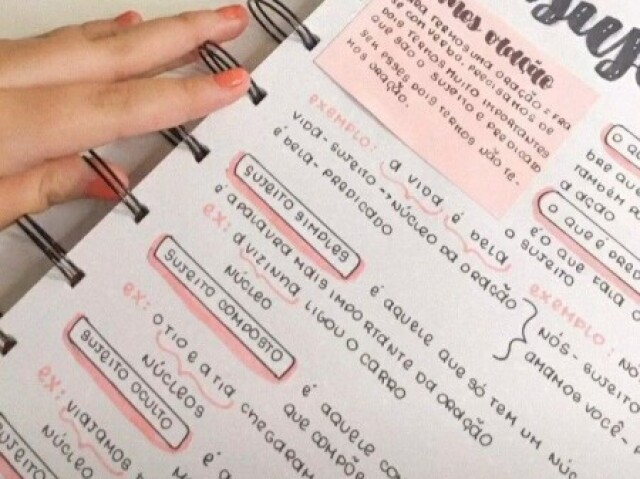 ORAÇÃO
PARA TERMOS UMA ORAÇÃO = FRA
SE COM VERBO. PRECISAMOS DE
DOIS TERMOS MUITO IMPORTANTES
QUE SÃO O SUJEITO E PREDICADO
SEM ESSES DOIS TERMOS NÃO TE-
MOS ORAÇÃO.
EXEMPLO: A VIDA É BELA
VIDA - SUJEITO → NÚCLEO DA ORAÇÃO
É BELA - PREDICADO
SUJEITO SIMPLES
É AQUELE QUE SÓ TEM UM NÚC
É A PALAVRA MAIS IMPORTANTE DA ORAÇÃO
EX: A VIZINHA LIGOU O CARRO
NÚCLEO
SUJEITO COMPOSTO
É AQUELE
QUE COMPÕE
EX: O TIO E A TIA CHEGARAM
NÚCLEOS
SUJEITO OCULTO
É A
EX: VIAJAMOS
NÚCLEO
SUJEITO
O QUE
BRE QUE
TAMBÉM
A AÇÃO
O QUE É PRE
É O QUE FALA O
O SUJEITO
EXEMPLO: NÓ
NÓS - SUJEITO
AMAMOS VOCÊ -